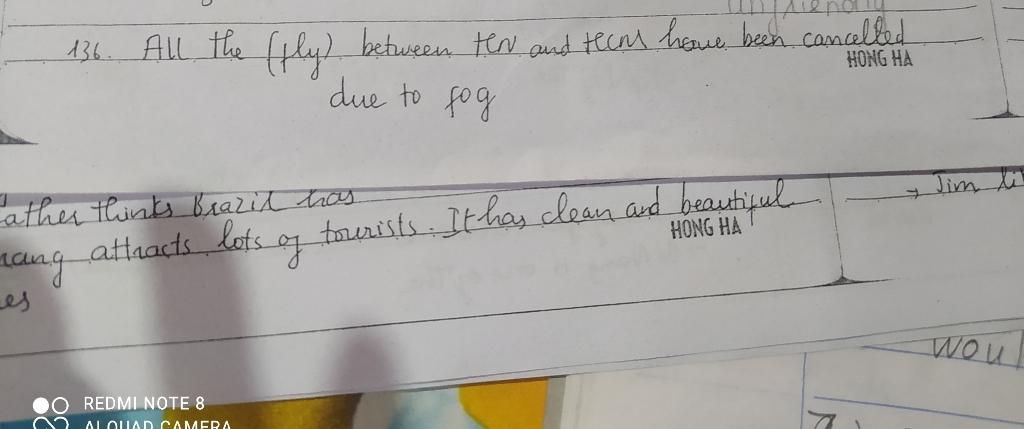 136. All the (fly) between ten and teen have been cancelled
HONG HA
due to fog
ather thinks Brazil has
nang attracts lots of tourists. It has clean and beautiful
HONG HA
es
→ Jim li
Woul
REDMI NOTE 8
AI QUAD CAMERA